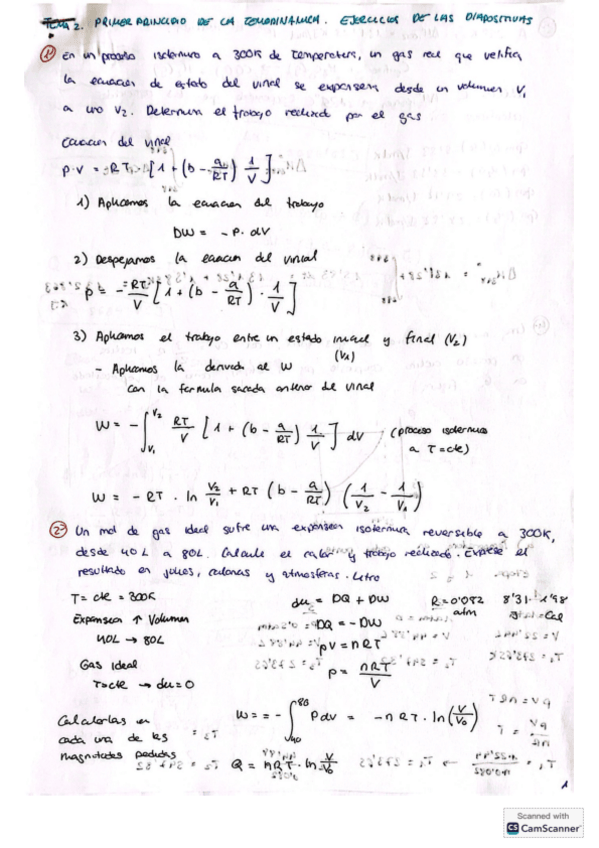 TEMA 2. PRIMER PRINCIPIO DE LA TERMODINÁMICA. EJERCICIOS DE LAS DIAPOSITIVAS
1 En un proceso isotermico a 300K de temperatura, un gas real que verifica
la ecuacion de estado del virial se expansera desde un volumen V1
a uno V2. Determina el trabajo realizado por el gas
Ecuacion del virial
P·V = RT [1 + (b - a/RT) 1/V]
1) Aplicamos la ecuacion del trabajo
DW = -P·dV
2) Despejamos la ecuacion del virial
p = RT/V [1 + (b - a/RT) · 1/V]
3) Aplicamos el trabajo entre un estado inicial y final (V2)
(V1)
- Aplicamos la derivada al W
con la formula sacada anterior del virial
W = - ∫V1 V2 RT/V [1 + (b - a/RT) 1/V] dV (proceso isotermico
a T = cte)
W = - RT · ln V2/V1 + RT (b - a/RT) (1/V2 - 1/V1)
2 Un mol de gas ideal sufre una expansion isotermica reversible a 300K,
desde 40L a 80L. Calcule el calor y trabajo realizado. Exprese el
resultado en julios, calorias y atmosferas·litro
T = cte = 300K
du = DQ + DW
R = 0'082 8'31 1'98
atm Cal
Expansion ↑ Volumen
DQ = - DW
40L → 80L
pV = nRT
Gas Ideal
p = nRT/V
T = cte → du = 0
W = - ∫40 80 Pdv = - nRT · ln (V/V0)
Calcularlas en
cada una de las
magnitudes pedidas
Q = nRT · ln V/V0
1
Scanned with
CS CamScanner